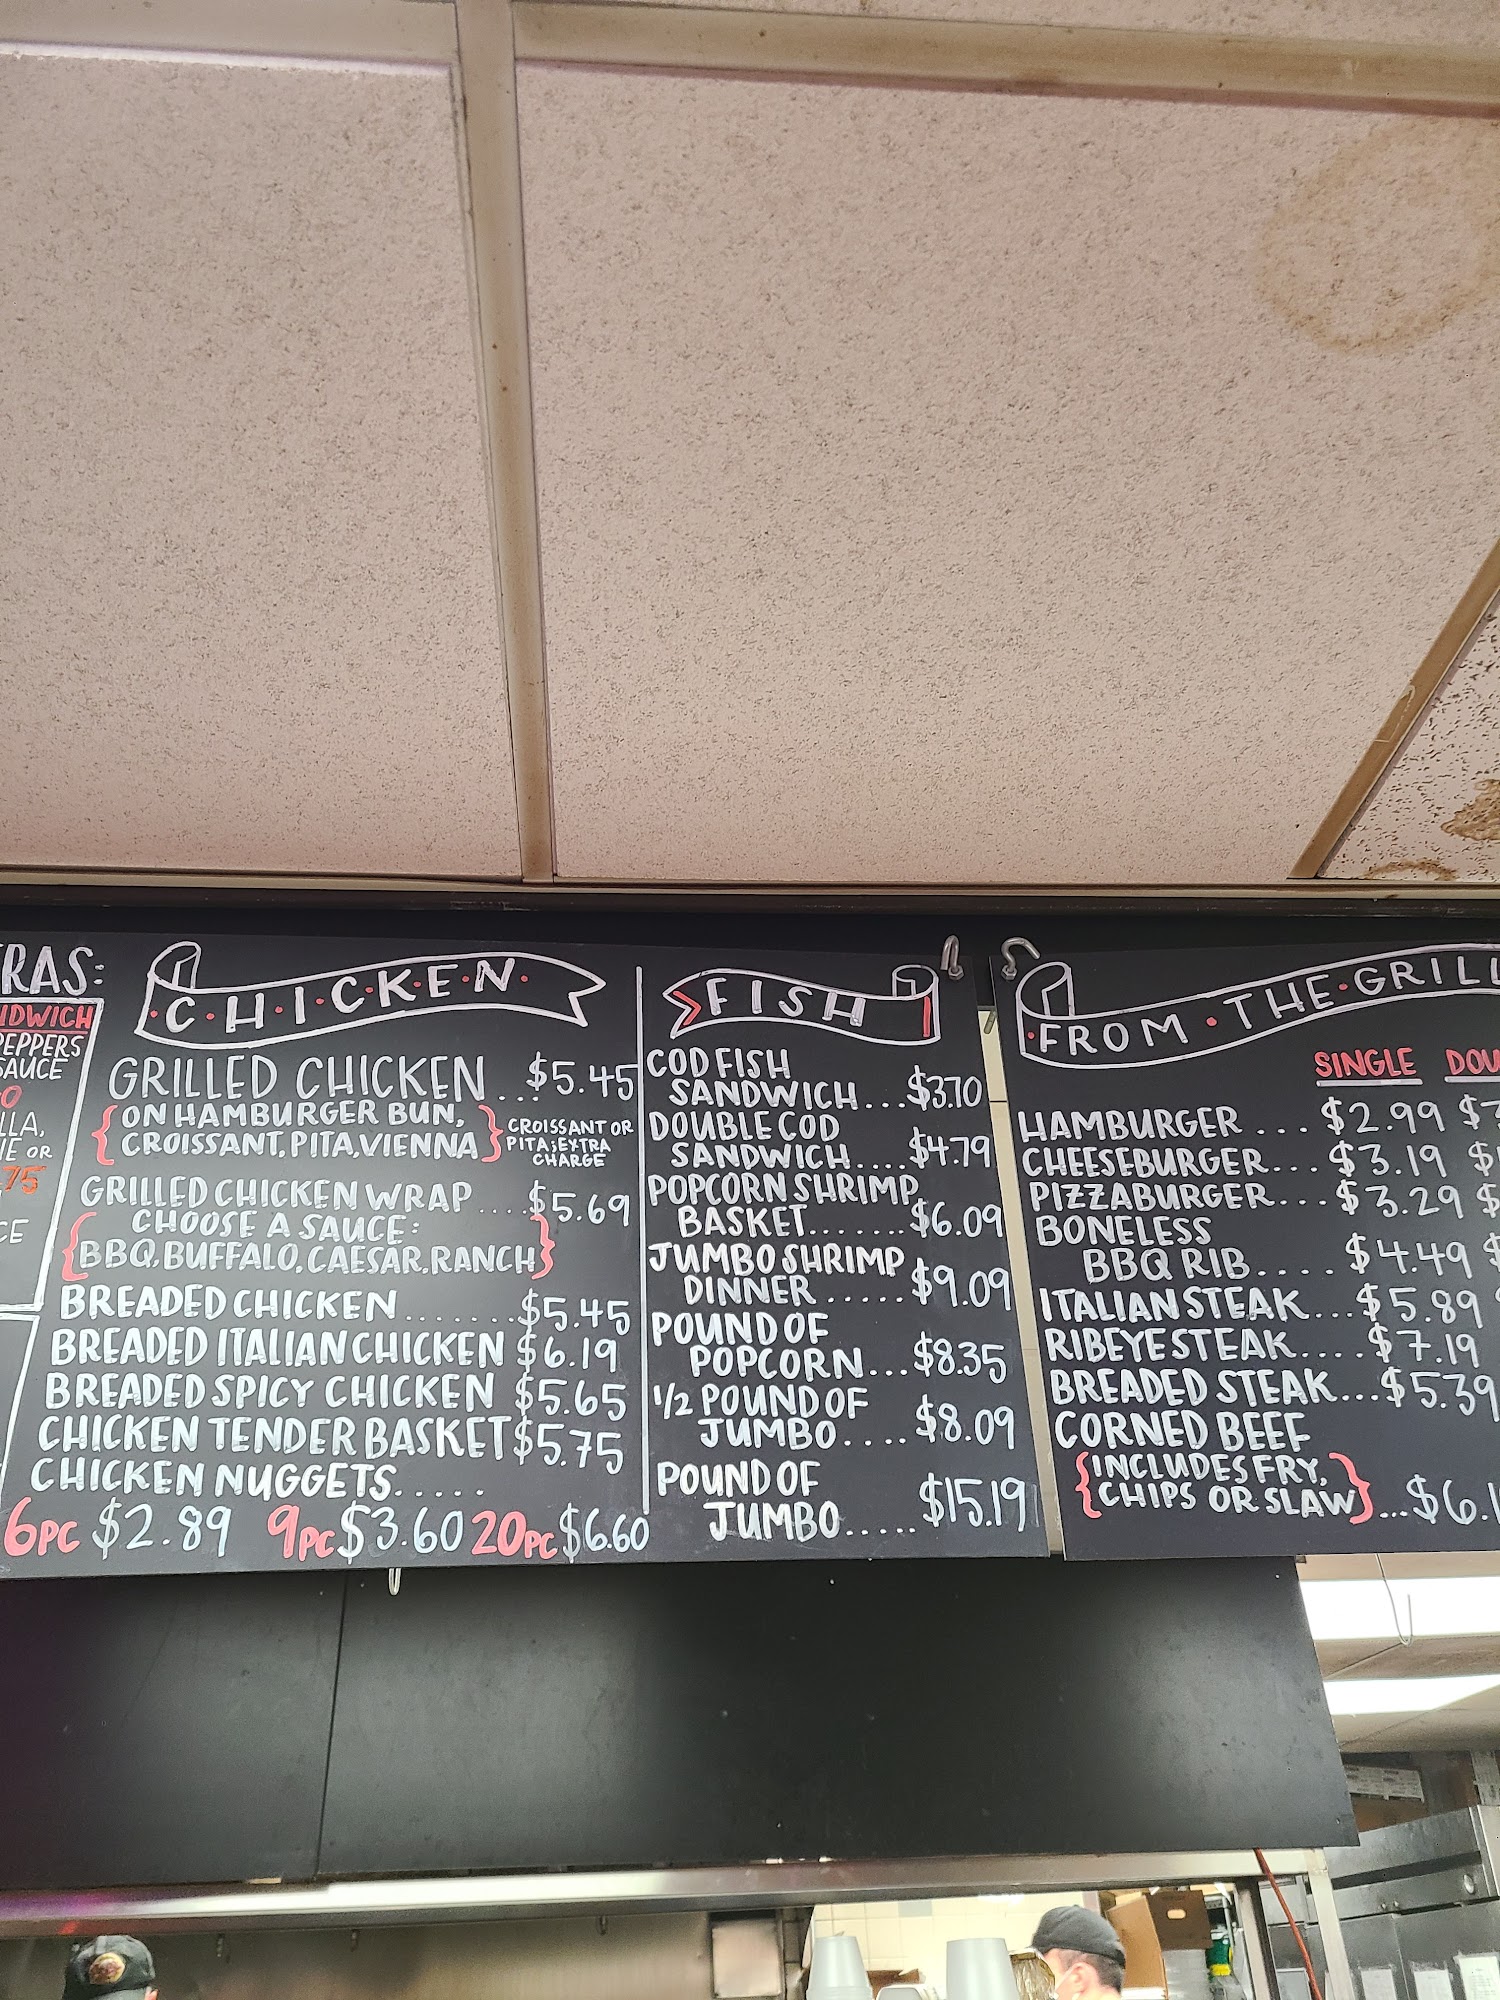 RAS:
NDWICH
PEPPERS
SAUCE
LLA,
IE OR
75
CE
C·H·I·C·K·E·N
GRILLED CHICKEN...$5.45
{ON HAMBURGER BUN,
CROISSANT, PITA, VIENNA}
CROISSANT OR
PITA; EXTRA
CHARGE
GRILLED CHICKEN WRAP ....$5.69
{CHOOSE A SAUCE:
BBQ, BUFFALO, CAESAR, RANCH}
BREADED CHICKEN........$5.45
BREADED ITALIAN CHICKEN $6.19
BREADED SPICY CHICKEN $5.65
CHICKEN TENDER BASKET $5.75
CHICKEN NUGGETS.....
6PC $2.89 9PC $3.60 20PC $6.60
FISH
COD FISH
SANDWICH...$3.70
DOUBLE COD
SANDWICH....$4.79
POPCORN SHRIMP
BASKET......$6.09
JUMBO SHRIMP
DINNER .....$9.09
POUND OF
POPCORN...$8.35
1/2 POUND OF
JUMBO....$8.09
POUND OF
JUMBO.....$15.19
·FROM·THE·GRILL
SINGLE DOU
HAMBURGER ...$2.99 $
CHEESEBURGER...$3.19 $
PIZZABURGER...$3.29 $
BONELESS
BBQ RIB....$4.49 $
ITALIAN STEAK...$5.89
RIBEYE STEAK....$7.19
BREADED STEAK...$5.39
CORNED BEEF
{INCLUDES FRY,
CHIPS OR SLAW}...$6.1